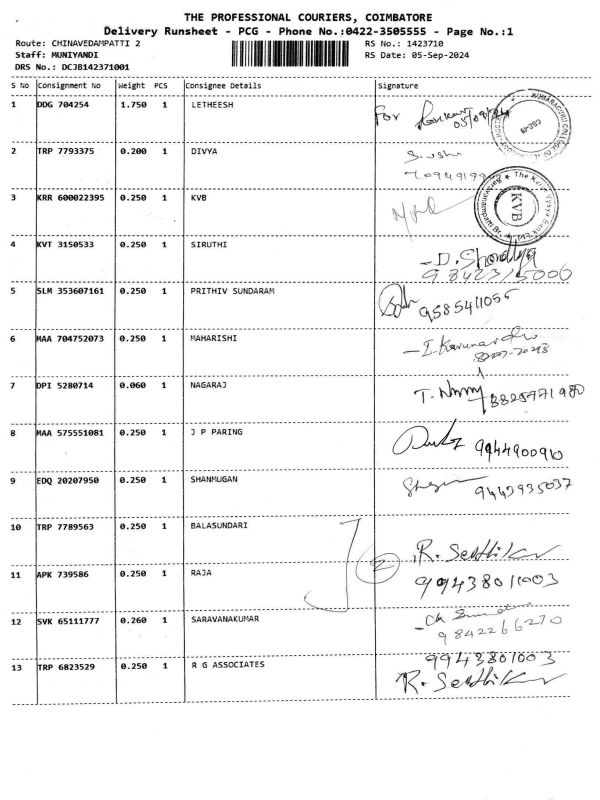 THE PROFESSIONAL COURIERS, COIMBATORE
Delivery Runsheet - PCG - Phone No.:0422-3505555 - Page No.:1
Route: CHINAVEDAMPATTI 2 RS No.: 1423710
Staff: MUNIYANDI RS Date: 05-Sep-2024
DRS No.: DCJB142371001
S No Consignment No Weight PCS Consignee Details Signature
1 DDG 704254 1.750 1 LETHEESH For 05/09/24
2 TRP 7793375 0.200 1 DIVYA
3 KRR 600022395 0.250 1 KVB KVB
4 KVT 3150533 0.250 1 SIRUTHI
9842315006
5 SLM 353607161 0.250 1 PRITHIV SUNDARAM 9585411055
6 MAA 704752073 0.250 1 MAHARISHI
7 DPI 5280714 0.060 1 NAGARAJ 8825971980
8 MAA 575551081 0.250 1 J P PARING 9944900910
9 EDQ 20207950 0.250 1 SHANMUGAN 9443935037
10 TRP 7789563 0.250 1 BALASUNDARI 2 R. Senthilkur
11 APK 739586 0.250 1 RAJA 9943801003
12 SVK 65111777 0.260 1 SARAVANAKUMAR
9842266270
13 TRP 6823529 0.250 1 R G ASSOCIATES 9943801003
R. Senthilkur